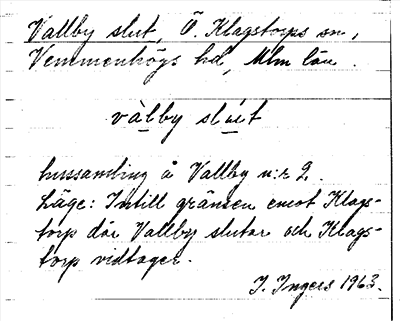 Vallby slut, Ö. Klagstorps sn,
Vemmenhögs hd, Mlm län.
vàlby slut
hussamling å Vallby n:r 2.
Läge: Intill gränsen emot Klags-
torp där Vallby slutar och Klags-
torp vidtager.
I. Ingers 1963.